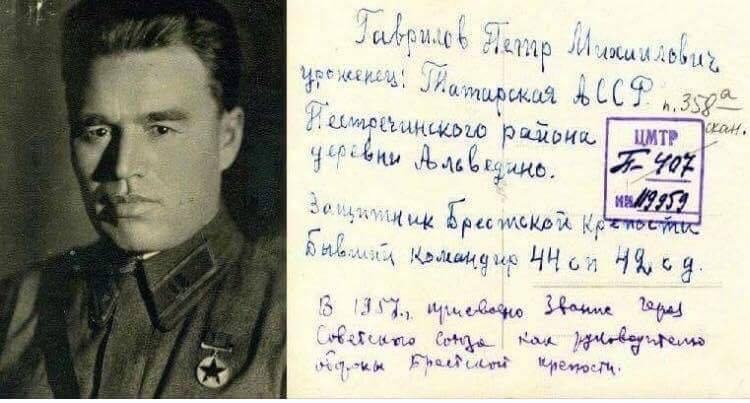 Гаврилов Петр Михаилович
уроженец: Татарская АССР
Пестречинского района
деревни Альведино.
п. 358а
скан.
ЦМТР
П-407
ИНВ 119959
Защитник Брестской крепости
Бывший командир 44 сп 42 с д.
В 1957г. присвоено звание героя
Советского Союза как руководителю
обороны Брестской крепости.